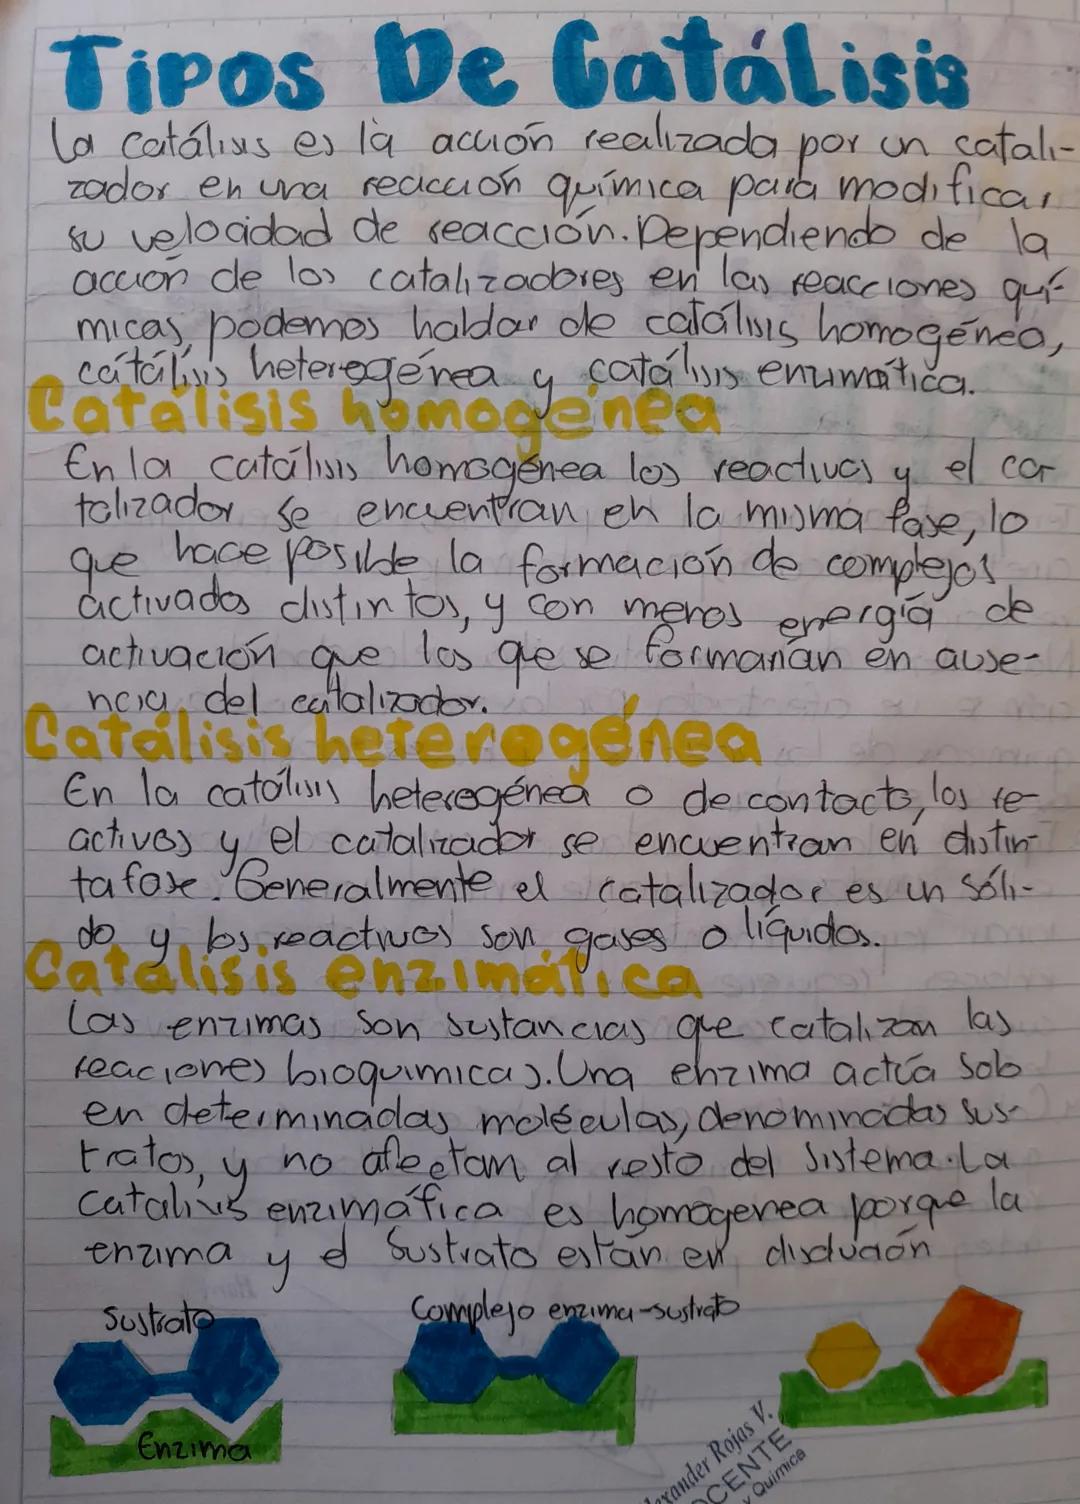 Tipos De Catálisis
La catálisis es la acción realizada por un catali-
zador en una reacción química para modificar
su velocidad de reacción. Dependiendo de la
acción de los catalizadores en las reacciones quí-
micas, podemos haldar de catálisis homogénea,
catálisis heterogénea y catálisis enzimática.
Catálisis homogénea
En la catálisis homogénea los reactivos y el ca-
talizador se encuentran en la misma fase, lo
que hace posible la formación de complejos
activados distintos, y con menos energía de
activación que los que se formarían en ause-
ncia del catalizador.
Catálisis heterogénea
En la catálisis heterogénea o de contacto, los re-
activos y el catalizador se encuentran en distin-
ta fase. Generalmente el catalizador es un sóli-
do y los reactivos son gases o líquidos.
Catálisis enzimática
Las enzimas son sustancias que catalizan las
reaciones bioquimicas. Una enzima actúa solo
en determinadas moléculas, denominadas sus-
tratos, y no afectam al resto del sistema. La
catalisis enzimática es homogenea porque la
enzima y el sustrato están en disolución
Sustrato
Complejo enzima-sustrato
Enzima
exander Rojas V.
OCENTE
y Química